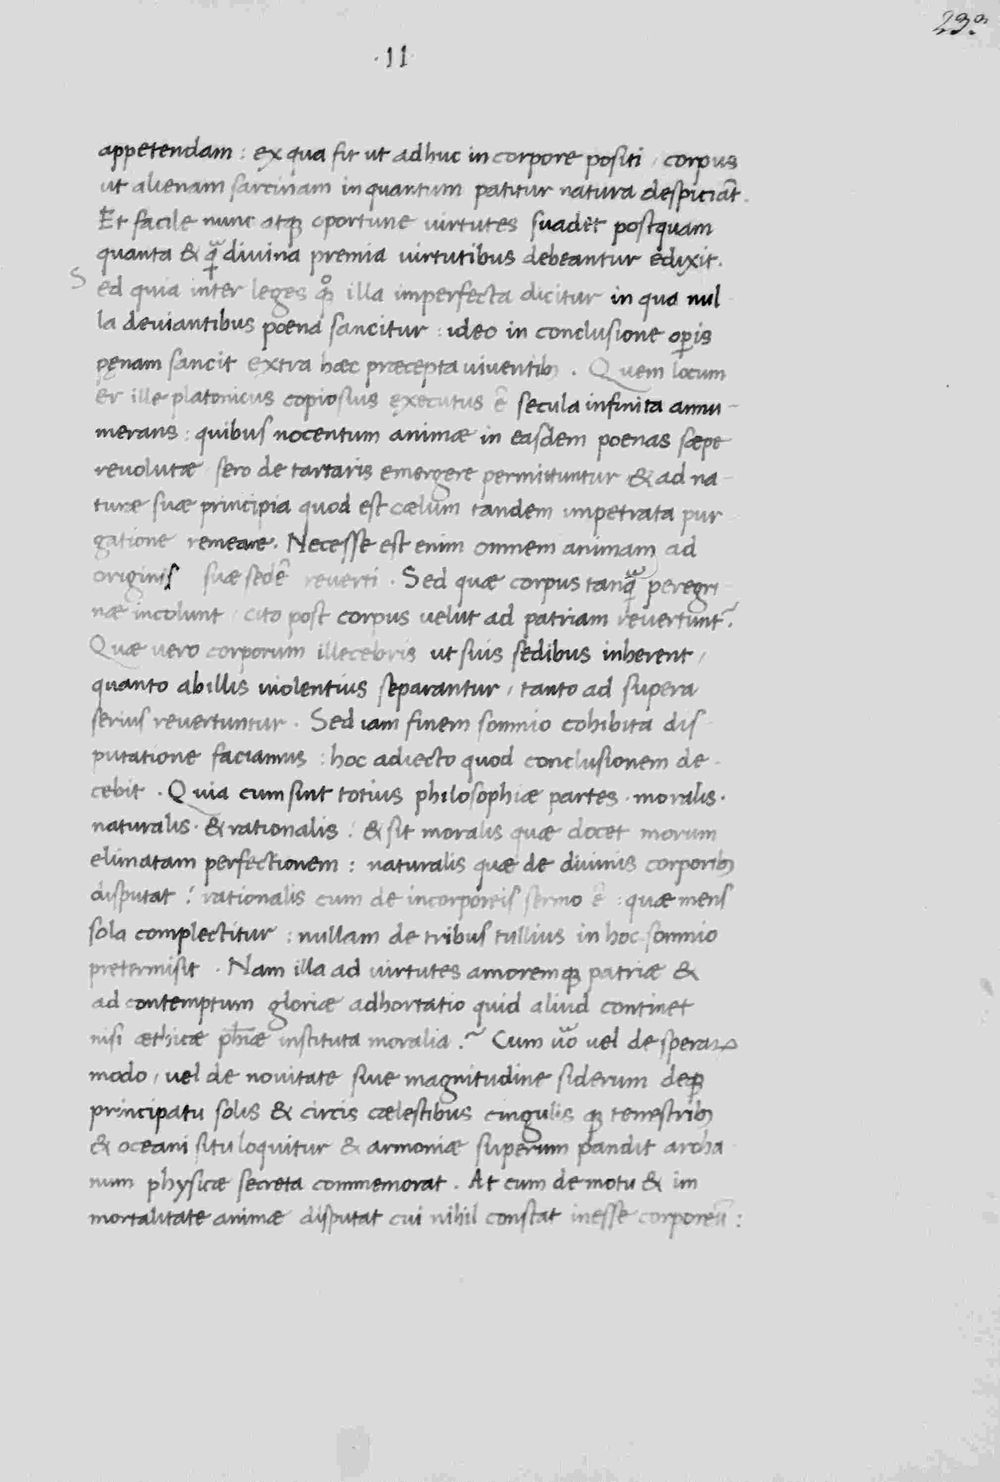 233
·II·
appetendam : ex qua fit ut adhuc in corpore positi / corpus
ut alienam sarcinam in quantum patitur natura despiciāt.
Et facile nunc atqꝫ oportune virtutes suadet postquam
quanta & q̄ divina premia virtutibus debeantur edixit.
Sed quia inter leges qꝫ illa imperfecta dicitur in qua nul-
la deviantibus poena sancitur : ideo in conclusione operis
pęnam sancit extra hæc præcepta viventibꝫ. Quem locum
er ille platonicus copiosius executus ē secula infinita annu-
merans : quibus nocentum animæ in easdem poenas sæpe
revolutæ sero de tartaris emergere permittuntur & ad na-
turæ suæ principia quod est cælum tandem impetrata pur-
gatione remeare. Necesse est enim omnem animam ad
originis suæ sedē reverti. Sed quæ corpus tanq̄ peregri-
næ incolunt / cito post corpus velut ad patriam revertunt~.
Quæ vero corporum illecebris ut suis sedibus inherent /
quanto ab illis violentius separantur / tanto ad supera
serius revertuntur. Sed iam finem somnio cohibita dis-
putatione faciamus : hoc adiecto quod conclusionem de-
cebit. Quia cum sint totius philosophiæ partes · moralis ·
naturalis · & rationalis : & sit moralis quæ docet morum
elimatam perfectionem : naturalis quæ de divinis corporibꝫ
disputat : rationalis cum de incorporeis sermo ē : quæ mens
sola complectitur : nullam de tribus tullius in hoc somnio
pretermisit. Nam illa ad virtutes amoremqꝫ patriæ &
ad contemptum gloriæ adhortatio quid aliud continet
nisi æthicæ phiæ instituta moralia? Cum v̄o vel de speraꝝ
modo / vel de novitate sive magnitudine siderum deqꝫ
principatu solis & circis cælestibus cingulis qꝫ terrestribꝫ
& oceani situ loquitur & armoniæ superum pandit archa-
num physicæ secreta commemorat. At cum de motu & im
mortalitate animæ disputat cui nihil constat inesse corporeū :